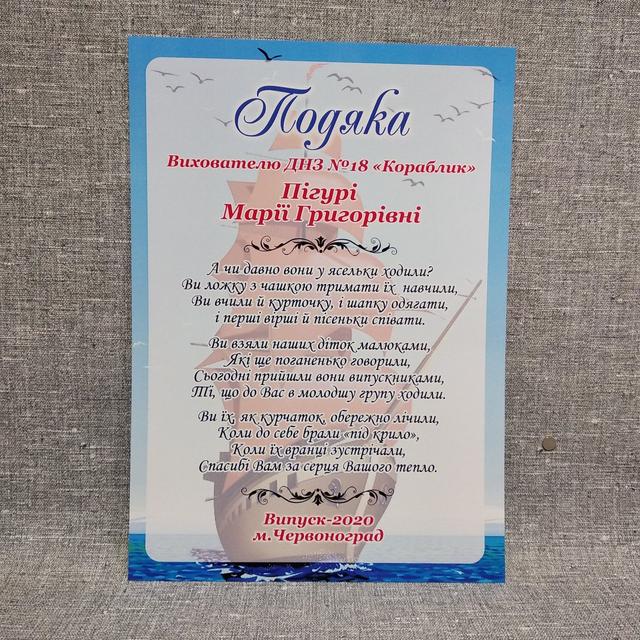 Подяка
Вихователю ДНЗ №18 «Кораблик»
Пігурі
Марії Григорівні
А чи давно вони у ясельки ходили?
Ви ложку з чашкою тримати їх навчили,
Ви вчили й курточку, і шапку одягати,
і перші вірші й пісеньки співати.
Ви взяли наших діток малюками,
Які ще поганенько говорили,
Сьогодні прийшли вони випускниками,
Ті, що до Вас в молодшу групу ходили.
Ви їх, як курчаток, обережно лічили,
Коли до себе брали «під крило»,
Коли їх вранці зустрічали,
Спасибі Вам за серця Вашого тепло.
Випуск-2020
м.Червоноград